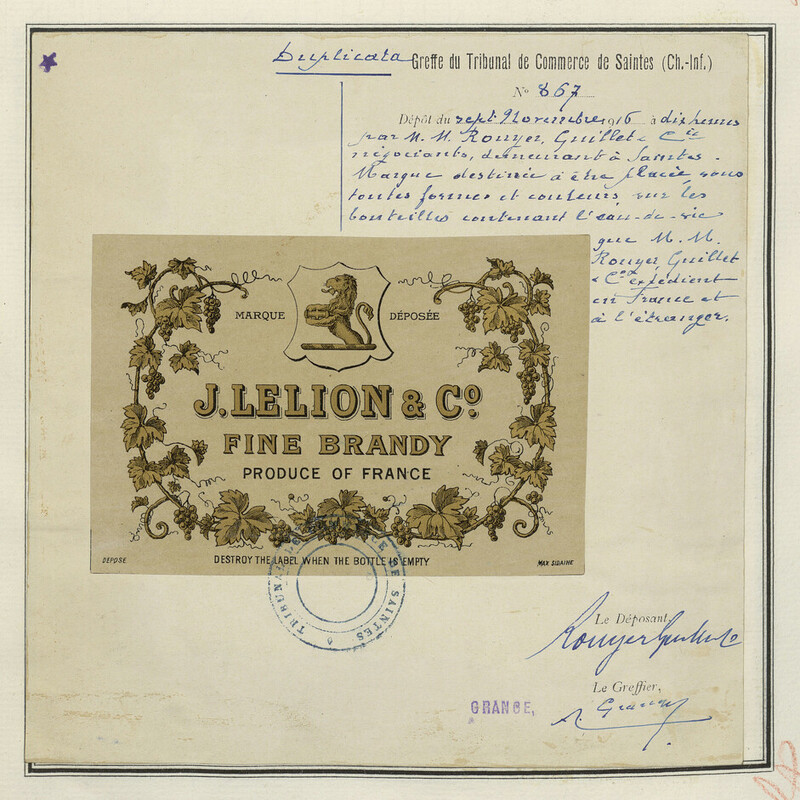 Duplicata Greffe du Tribunal de Commerce de Saintes (Ch.-Inf.)
N° 867
Dépôt du sept Novembre 1916 à dix heures
par M. M. Rouyer, Guillet & Cie
négociants, demeurant à Saintes.
Marque destinée à être placée, sous
toutes formes et couleurs, sur les
bouteilles contenant l'eau-de-vie
que M. M.
Rouyer, Guillet
& Cie expédient
en France et
à l'étranger.
MARQUE DÉPOSÉE
J. LELION & Co
FINE BRANDY
PRODUCE OF FRANCE
DÉPOSÉ
DESTROY THE LABEL WHEN THE BOTTLE IS EMPTY
MAX SIDAINE
TRIBUNAL DE COMMERCE DE SAINTES
Le Déposant,
Rouyer Guillet & Co
Le Greffier,
GRANGE,
Grange